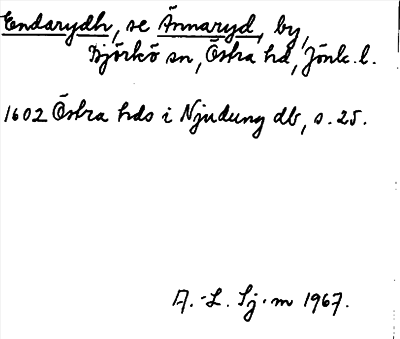 Endarydh, se Ännaryd, by,
Björkö sn, Östra hd, Jönk. l.
1602 Östra hds i Njudung db, s. 25.
A.-L. Sj-m 1967.